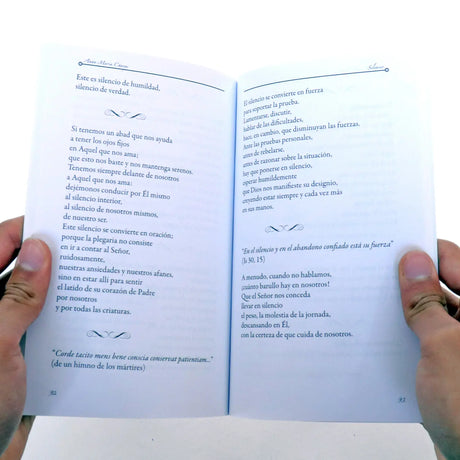 Anna Maria Cànopi
Este es silencio de humildad,
silencio de verdad.
Si tenemos un abad que nos ayuda
a tener los ojos fijos
en Aquel que nos ama:
que esto nos baste y nos mantenga serenos.
Tenemos siempre delante de nosotros
a Aquel que nos ama:
dejémonos conducir por Él mismo
al silencio interior,
al silencio de nosotros mismos,
de nuestro ser.
Este silencio se convierte en oración;
porque la plegaria no consiste
en ir a contar al Señor,
ruidosamente,
nuestras ansiedades y nuestros afanes,
sino en estar allí para sentir
el latido de su corazón de Padre
por nosotros
y por todas las criaturas.
"Corde tacito mens bene conscia conservat patientiam..."
(de un himno de los mártires)
92
Silencio
El silencio se convierte en fuerza
para soportar la prueba.
Lamentarse, discutir,
hablar de las dificultades,
hace, en cambio, que disminuyan las fuerzas.
Ante las pruebas personales,
antes de rebelarse,
antes de razonar sobre la situación,
hay que ponerse en silencio,
esperar humildemente
que Dios nos manifieste su designio,
creyendo estar siempre y cada vez más
en sus manos.
"En el silencio y en el abandono confiado está su fuerza"
(Is 30, 15)
A menudo, cuando no hablamos,
¡cuánto barullo hay en nosotros!
Que el Señor nos conceda
llevar en silencio
el peso, la molestia de la jornada,
descansando en Él,
con la certeza de que cuida de nosotros.
93